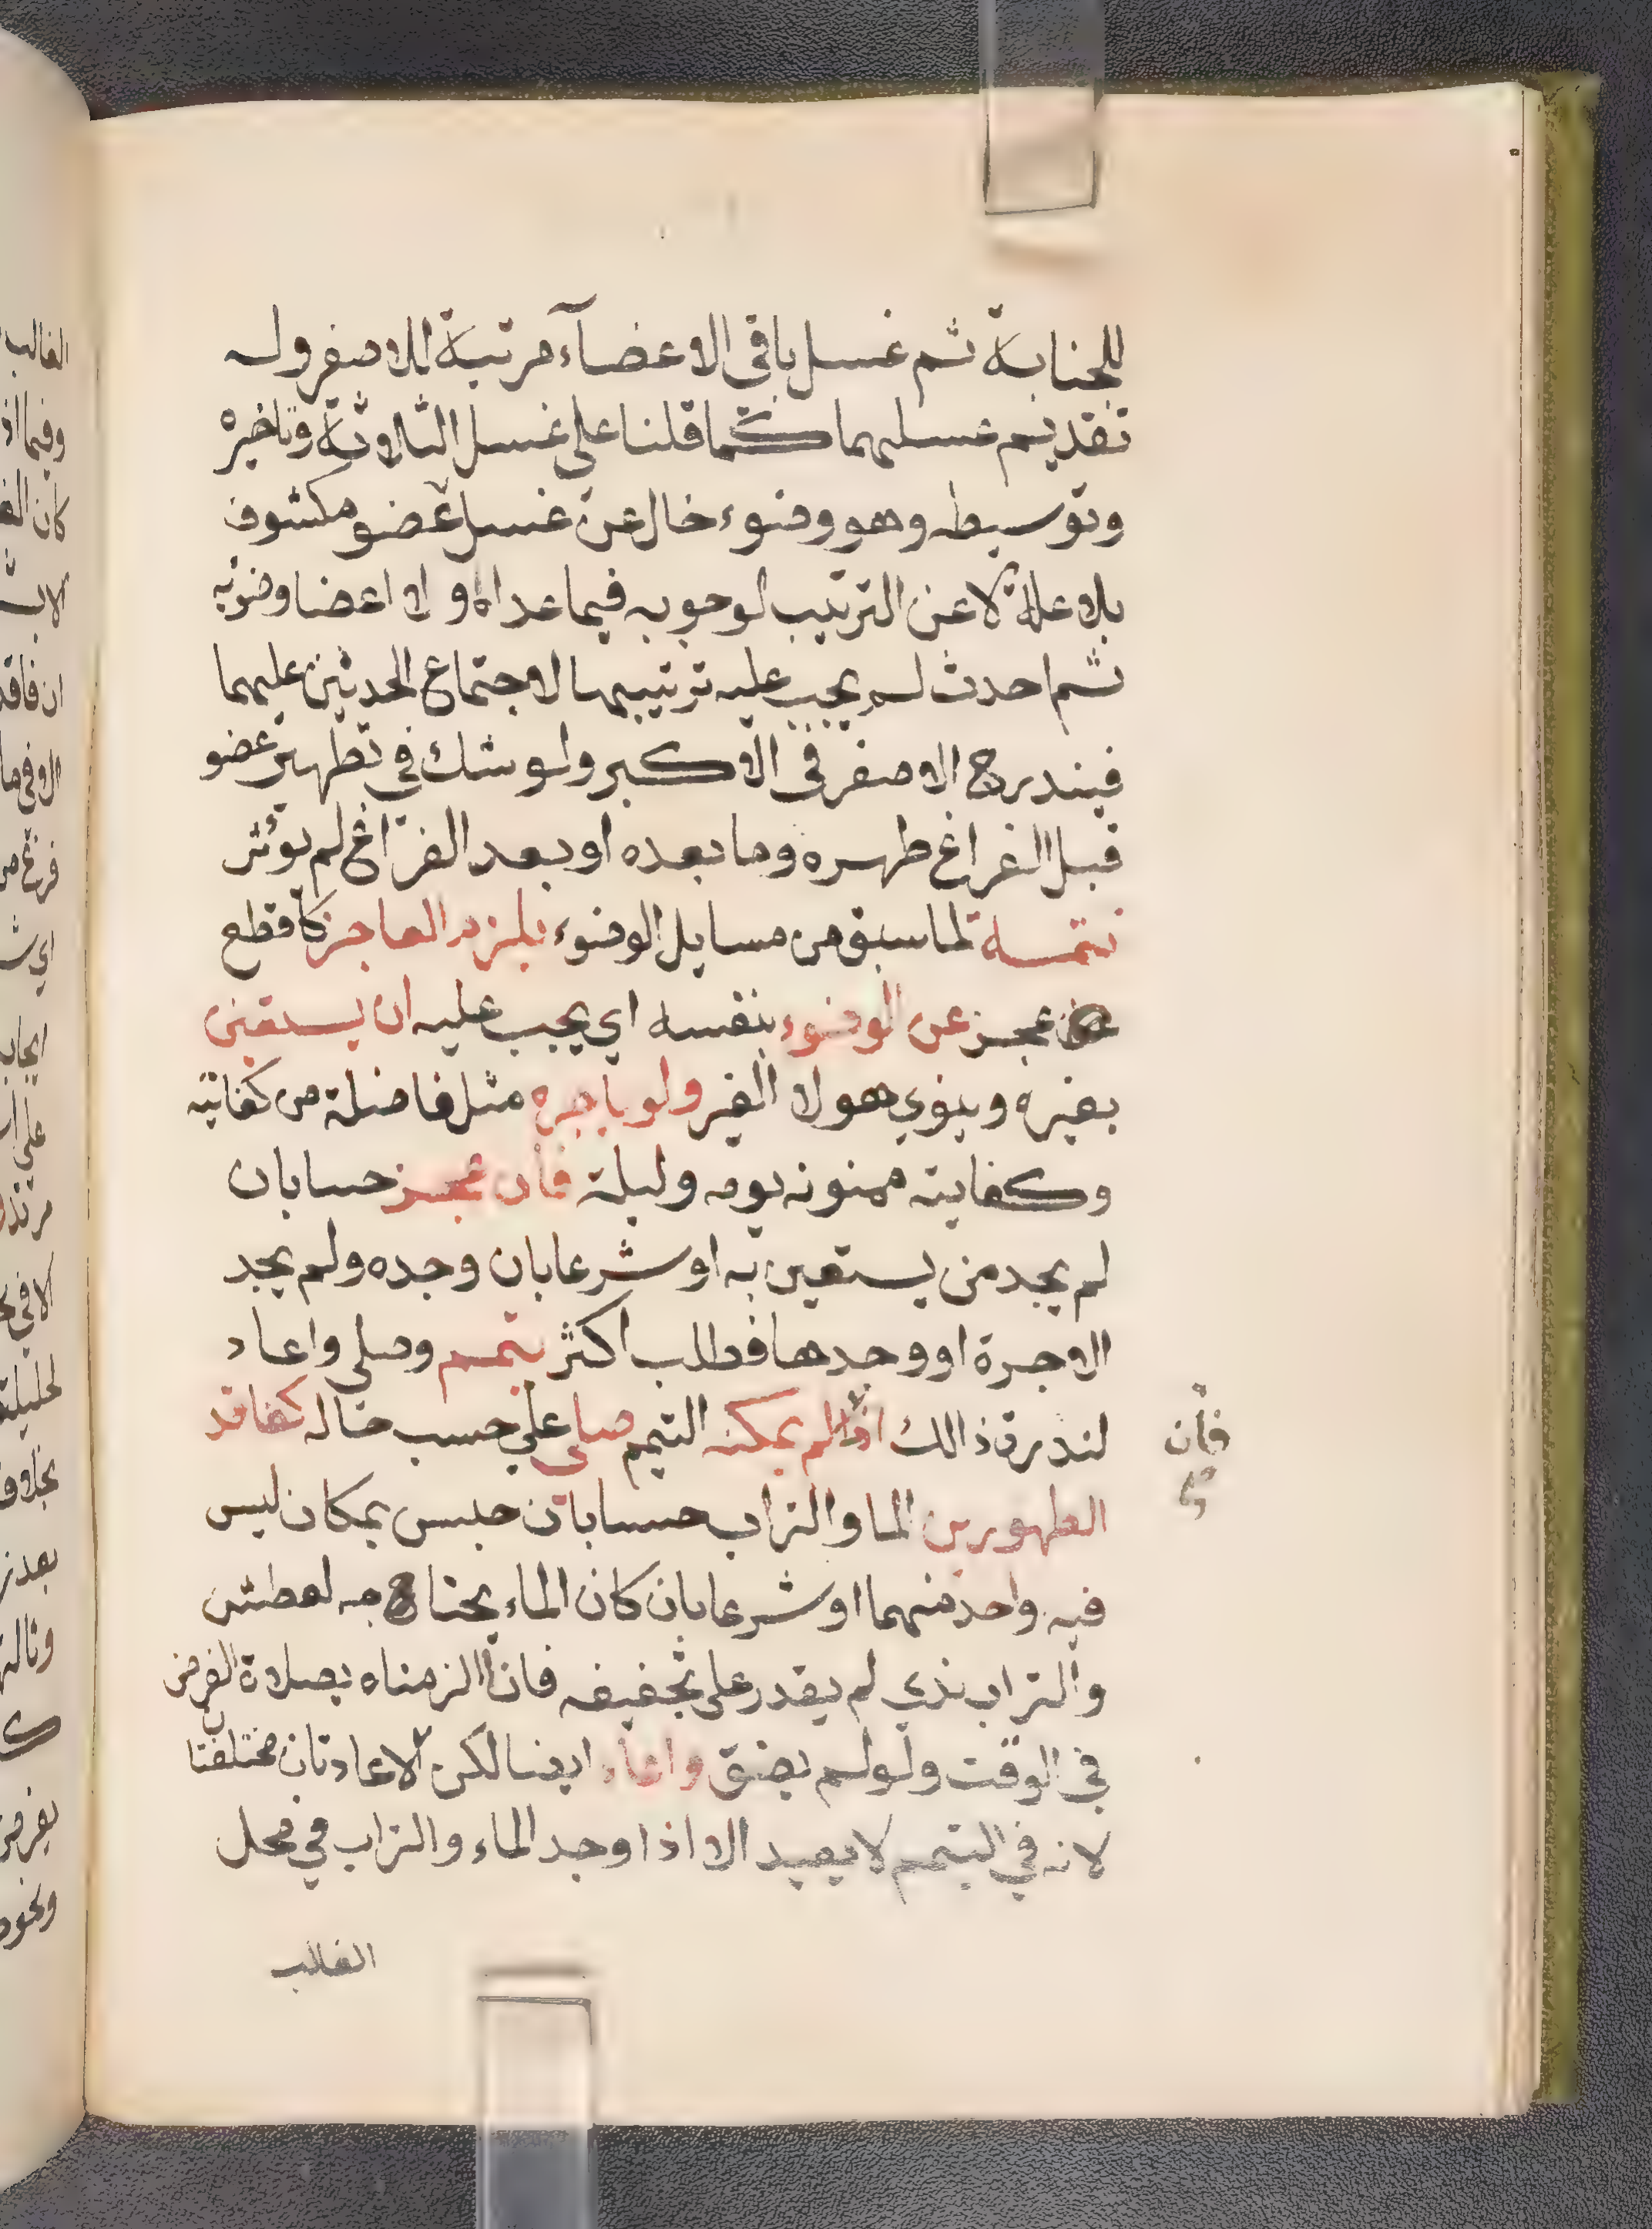 للجنابة ثم غسل باقي الاعضآء مرتبة للاصغر وله
تقديم غسلهما كما قلنا على غسل الثلاوثة وتاخيره
وتوسيطه وهو وضوء خال عن غسل عضو مكشوف
بلا علة لا عن الترتيب لوجوبه فيما عداه ولا اعضا وضوئه
ثم احدث لم يجب عليه ترتيبها لاجتماع الحدثين عليهما
فيندرج الاصغر في الاكبر ولو شك في تطهير عضو
قبل الفراغ طهره وما بعده او بعد الفراغ لم يوثر
تتمة لما سبق من مسايل الوضوء يلزم العاجز كاقطع
عجز عن الوضوء بنفسه اي يجب عليه ان يستعين
بغيره وينوي هو لا الغير ولو باجره مثل فاضلة من كفايته
وكفايته ممنونه يومه وليلة فان عجز حسا بان
لم يجد من يستعين به او شرعا بان وجده ولم يجد
الاجرة او وجدها فطلب اكثر يتمم وصلى واعاد
لندرة ذالك اذا لم يمكنه التيمم صلى على حسب حاله كفاقد
الطهورين الما والتراب حسا بان حبس بمكان ليس
فيه واحد منهما او شرعا بان كان الماء يحتاج به لعطش
والتراب ندي لم يقدر على تجفيفه فانا الزمناه بصلاة الفرض
في الوقت ولو لم يضق واعاد ايضا لكن الاعادتان مختلفتان
لانه في التيمم لا يعيد الا اذا وجد الماء والتراب في محل
الغالب
فان